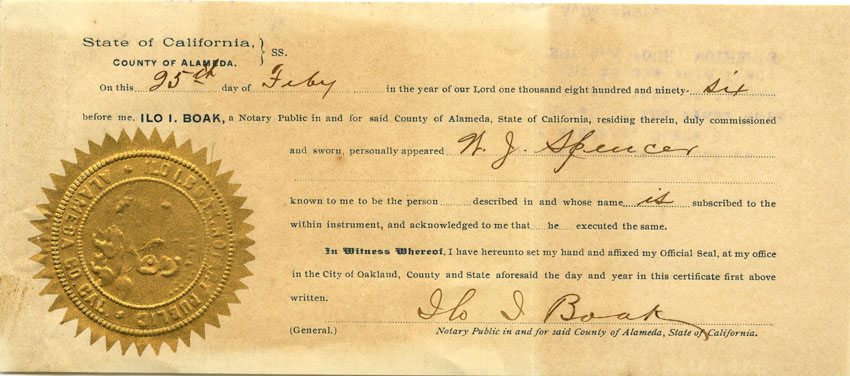 State of California,
COUNTY OF ALAMEDA. } SS.
On this 25th day of Feby in the year of our Lord one thousand eight hundred and ninety-six
before me, ILO I. BOAK, a Notary Public in and for said County of Alameda, State of California, residing therein, duly commissioned
and sworn, personally appeared W. J. Spencer
known to me to be the person described in and whose name is subscribed to the
within instrument, and acknowledged to me that he executed the same.
In Witness Whereof, I have hereunto set my hand and affixed my Official Seal, at my office
in the City of Oakland, County and State aforesaid the day and year in this certificate first above
written.
Ilo I Boak
(General.) Notary Public in and for said County of Alameda, State of California.
NOTARY PUBLIC
ALAMEDA